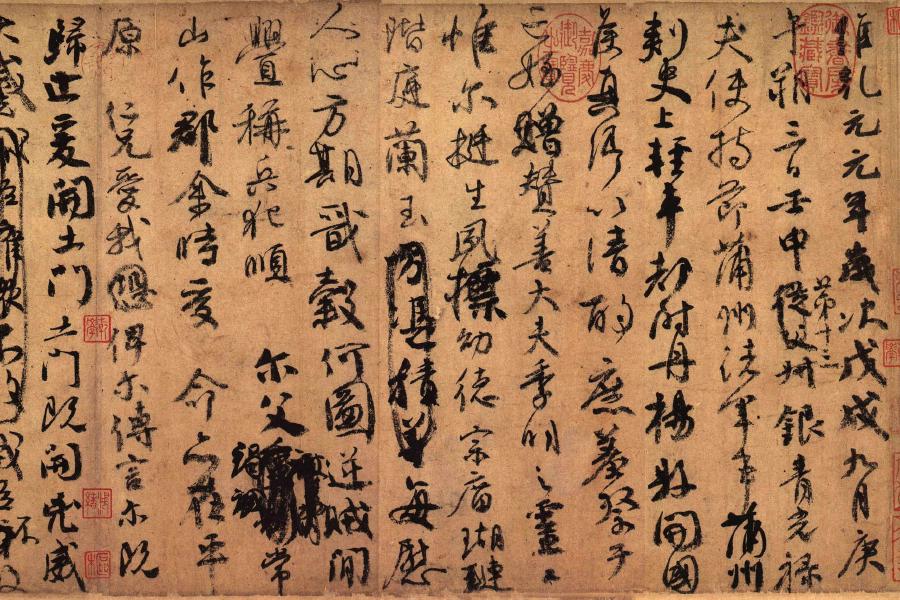 維乾元元年歲次戊戌九月庚
午朔三日壬申第十三從父叔銀青光祿
夫使持節蒲州諸軍事蒲州
刺史上輕車都尉丹楊縣開國
侯真卿以清酌庶羞祭于
亡姪贈贊善大夫季明之靈
惟尔挺生夙標幼德宗廟瑚璉
階庭蘭玉方憑積善每慰
人心方期戩穀何圖逆賊間
釁稱兵犯順尔父竭誠常
山作郡余時受命亦在平
原仁兄愛我俾尔傳言尔既
歸止爰開土門土門既開凶威
大蹙賊臣擁衆不